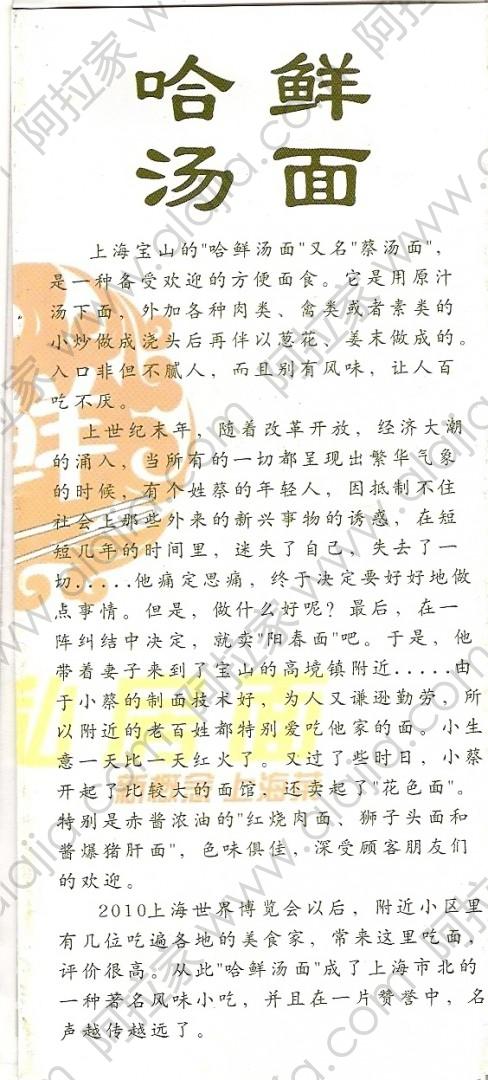 哈鲜
汤面
上海宝山的"哈鲜汤面"又名"蔡汤面",
是一种备受欢迎的方便面食。它是用原汁
汤下面，外加各种肉类、禽类或者素类的
小炒做成浇头后再伴以葱花、姜末做成的。
入口非但不腻人，而且别有风味，让人百
吃不厌。
上世纪末年，随着改革开放，经济大潮
的涌入，当所有的一切都呈现出繁华气象
的时候，有个姓蔡的年轻人，因抵制不住
社会上那些外来的新兴事物的诱惑，在短
短几年的时间里，迷失了自己，失去了一
切.....他痛定思痛，终于决定要好好地做
点事情。但是，做什么好呢？最后，在一
阵纠结中决定，就卖"阳春面"吧。于是，他
带着妻子来到了宝山的高境镇附近.....由
于小蔡的制面技术好，为人又谦逊勤劳，所
以附近的老百姓都特别爱吃他家的面。小生
意一天比一天红火了。又过了些时日，小蔡
开起了比较大的面馆，还卖起了"花色面"。
特别是赤酱浓油的"红烧肉面、狮子头面和
酱爆猪肝面"，色味俱佳，深受顾客朋友们
的欢迎。
2010上海世界博览会以后，附近小区里
有几位吃遍各地的美食家，常来这里吃面，
评价很高。从此"哈鲜汤面"成了上海市北的
一种著名风味小吃，并且在一片赞誉中，名
声越传越远了。
鲜
新概念 上海菜
阿拉家 www.alajia.com